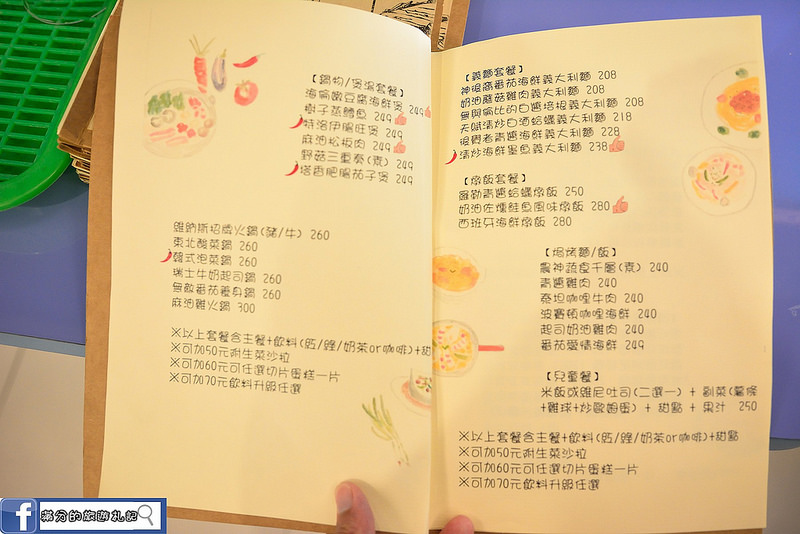 【鍋物/煲湯套餐】
海倫嫩豆腐海鮮煲 249
樹子蒸鱈魚 249
特洛伊腸旺煲 249
麻油松板肉 249
野菇三重奏(素) 249
塔香肥腸茄子煲 249
維納斯招牌火鍋(豬/牛) 260
東北酸菜鍋 260
韓式泡菜鍋 260
瑞士牛奶起司鍋 260
無敵番茄養身鍋 260
麻油雞火鍋 300
※以上套餐含主餐+飲料(紅/綠/奶茶or咖啡)+甜
※可加50元附生菜沙拉
※可加60元可任選切片蛋糕一片
※可加70元飲料升級任選
【義麵套餐】
神很高番茄海鮮義大利麵 208
奶油蘑菇雞肉義大利麵 208
無與倫比的白醬培根義大利麵 208
天賦清炒白酒蛤蠣義大利麵 218
很覺老青醬海鮮義大利麵 228
清炒海鮮墨魚義大利麵 238
【燉飯套餐】
羅勒青醬蛤蠣燉飯 250
奶油佐燻鮭魚風味燉飯 280
西班牙海鮮燉飯 280
【焗烤麵/飯】
農神蔬食千層(素) 240
青醬雞肉 240
奈坦咖哩牛肉 240
波賽頓咖哩海鮮 240
起司奶油雞肉 240
番茄愛情海鮮 249
【兒童餐】
米飯或維尼吐司(二選一) + 副菜(薯條
+雞球+炒歐姆蛋) + 甜點 + 果汁 250
※以上套餐含主餐+飲料(紅/綠/奶茶or咖啡)+甜點
※可加50元附生菜沙拉
※可加60元可任選切片蛋糕一片
※可加70元飲料升級任選
滿分的旅遊札記